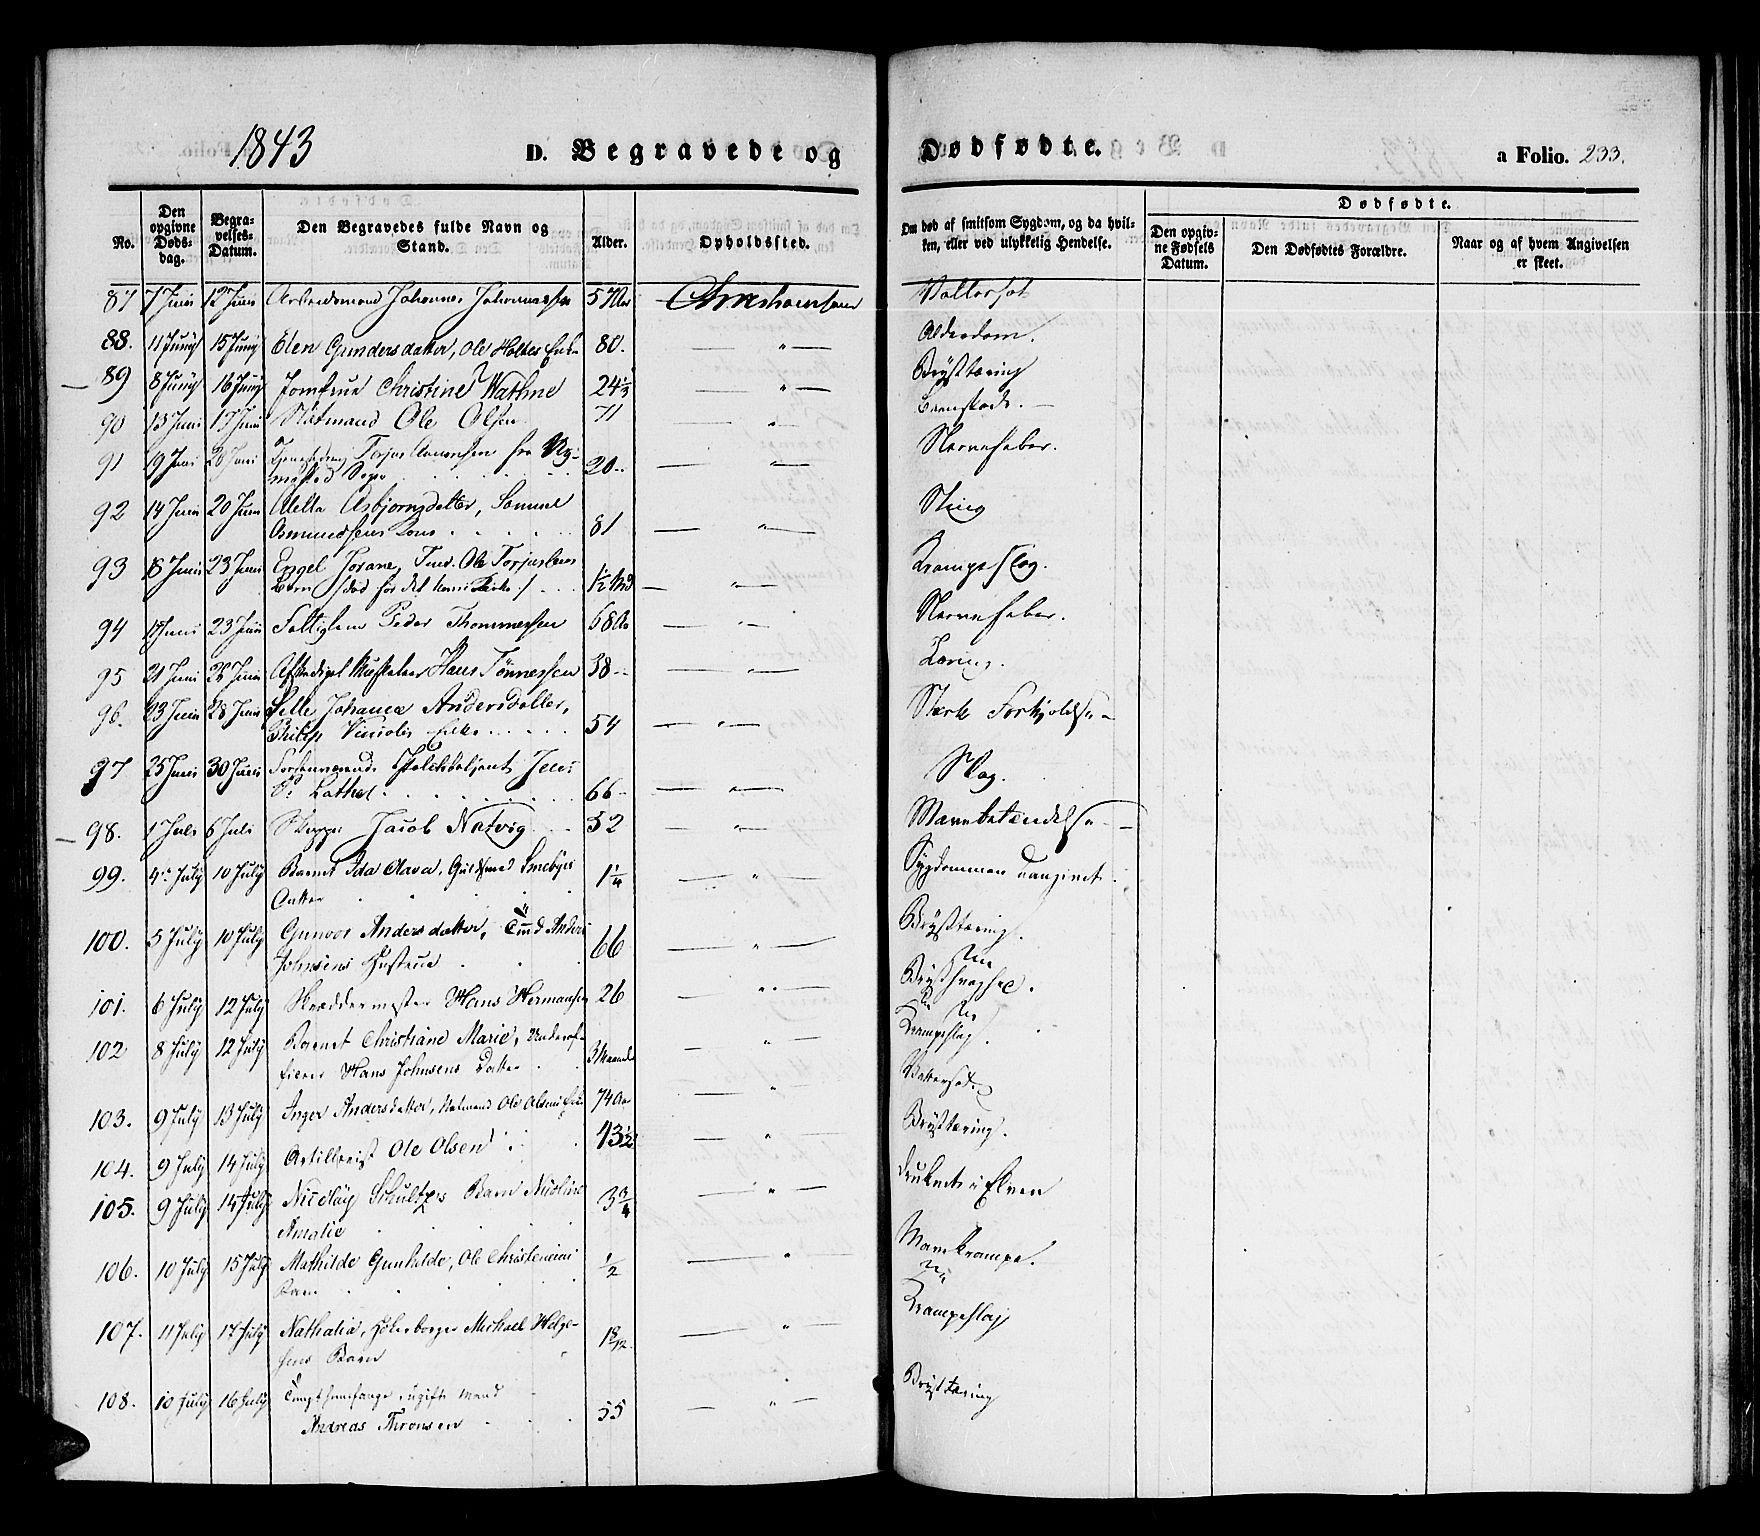 1843
D. Begravede og Dødfødte. a Folio. 233.
No. Den opgivne Døds-dag. Begra-velses-Datum. Den Begravedes fulde Navn og Stand. Alder. Opholdssted. Om død af smitsom Sygdom, og da hvil-ken, eller ved ulykkelig Hendelse. Dødfødte.
Den opgiv-ne Fødsels Datum. Den Dødfødtes Forældre. Naar og af hvem Angivelsen er skeet.
87 7 Juni 12 Juni Arbeidsmand Johannes Johannessen 57 Aar Christianssand Vattersot
88. 11 Junij 15 Junij Elen Gundersdatter, Ole Holtes Enke 80. — " — Alderdom.
89 8 Junij 16 Junij Jomfrue Christine Wathne 24 1/3 — " — Brysttæring
90 13 Juni 17 Juni Ole Olsen 71 — " — Beenskade. —
91 19 Juni 20 Juni Torjus Aanensen fra
Sogn 20 — " — Nervefeber.
92 14 Juni 20 Juni Aletta Asbjørnsdatter, Samuel
Osmundsens Kone 81 — " — Sting
93 18 Juni 23 Juni Engel Jorane, Ole Torjussens
Barn (død før det kom i Kirke) 1/2 Md — " — Krampeslag.
94 17 Juni 23 Juni Fattiglem Peder Thommessen 68 Aar — " — Nervefeber.
95 21 Juni 26 Juni Afskediget Musketeer Hans Tønnessen 38 — " — Tæring.
96. 23 Juni 28 Juni Sille Johanne Andersdatter,
Philip Enke 54 — " — Stærk Forkjølelse
97 25 Juni 30 Juni Forhenværende Jens
P. 66 — " — Slag.
98. 1 Juli 6 Juli Skipper Jacob Natvig 52 — " — Mavebetændelse
99. 4de July 10 July Barnet Ida Olava, Guldsmed Smebyes
Datter 1 1/4 — " — Sygdommen uangivet.
100. 5 July 10 July Gunvor Andersdatter, Tmd Anders
Johnsens Hustrue 66 — " — Brysttæring.
101. 6 July 12 July Skræddermester Hans Hermansen 26 — " —
102 8 July 12 July Barnet Christiane Marie, Underof-
ficeer Hans Johnsens Datter 3 Maaned — " — Krampeslag.
103. 9 July 13 July Inger Andersdatter, Natmand Ole Olsens Enke 74 Aar — " — Vattersot
104. 9 July 14 July Artillerist Ole Olsen 43 1/2 — " — Brysttæring.
105. 9 July 14 July Nicolay Schultzes Barn Nicoline
Amalie 3 3/4 — " — druknet i Elven
106. 10 July 15 July Mathilde Gunhilde, Ole Christensens
Barn 1/2 — " — Mavekrampe.
107. 11 July 17 July Nathalia, Høkerborger Michael Helge-
sens Barn — " — Krampeslag
108. 10 July 16 July Tugthuusfange, ugift Mand
Andreas Thronsen 55 — " — Brysttæring